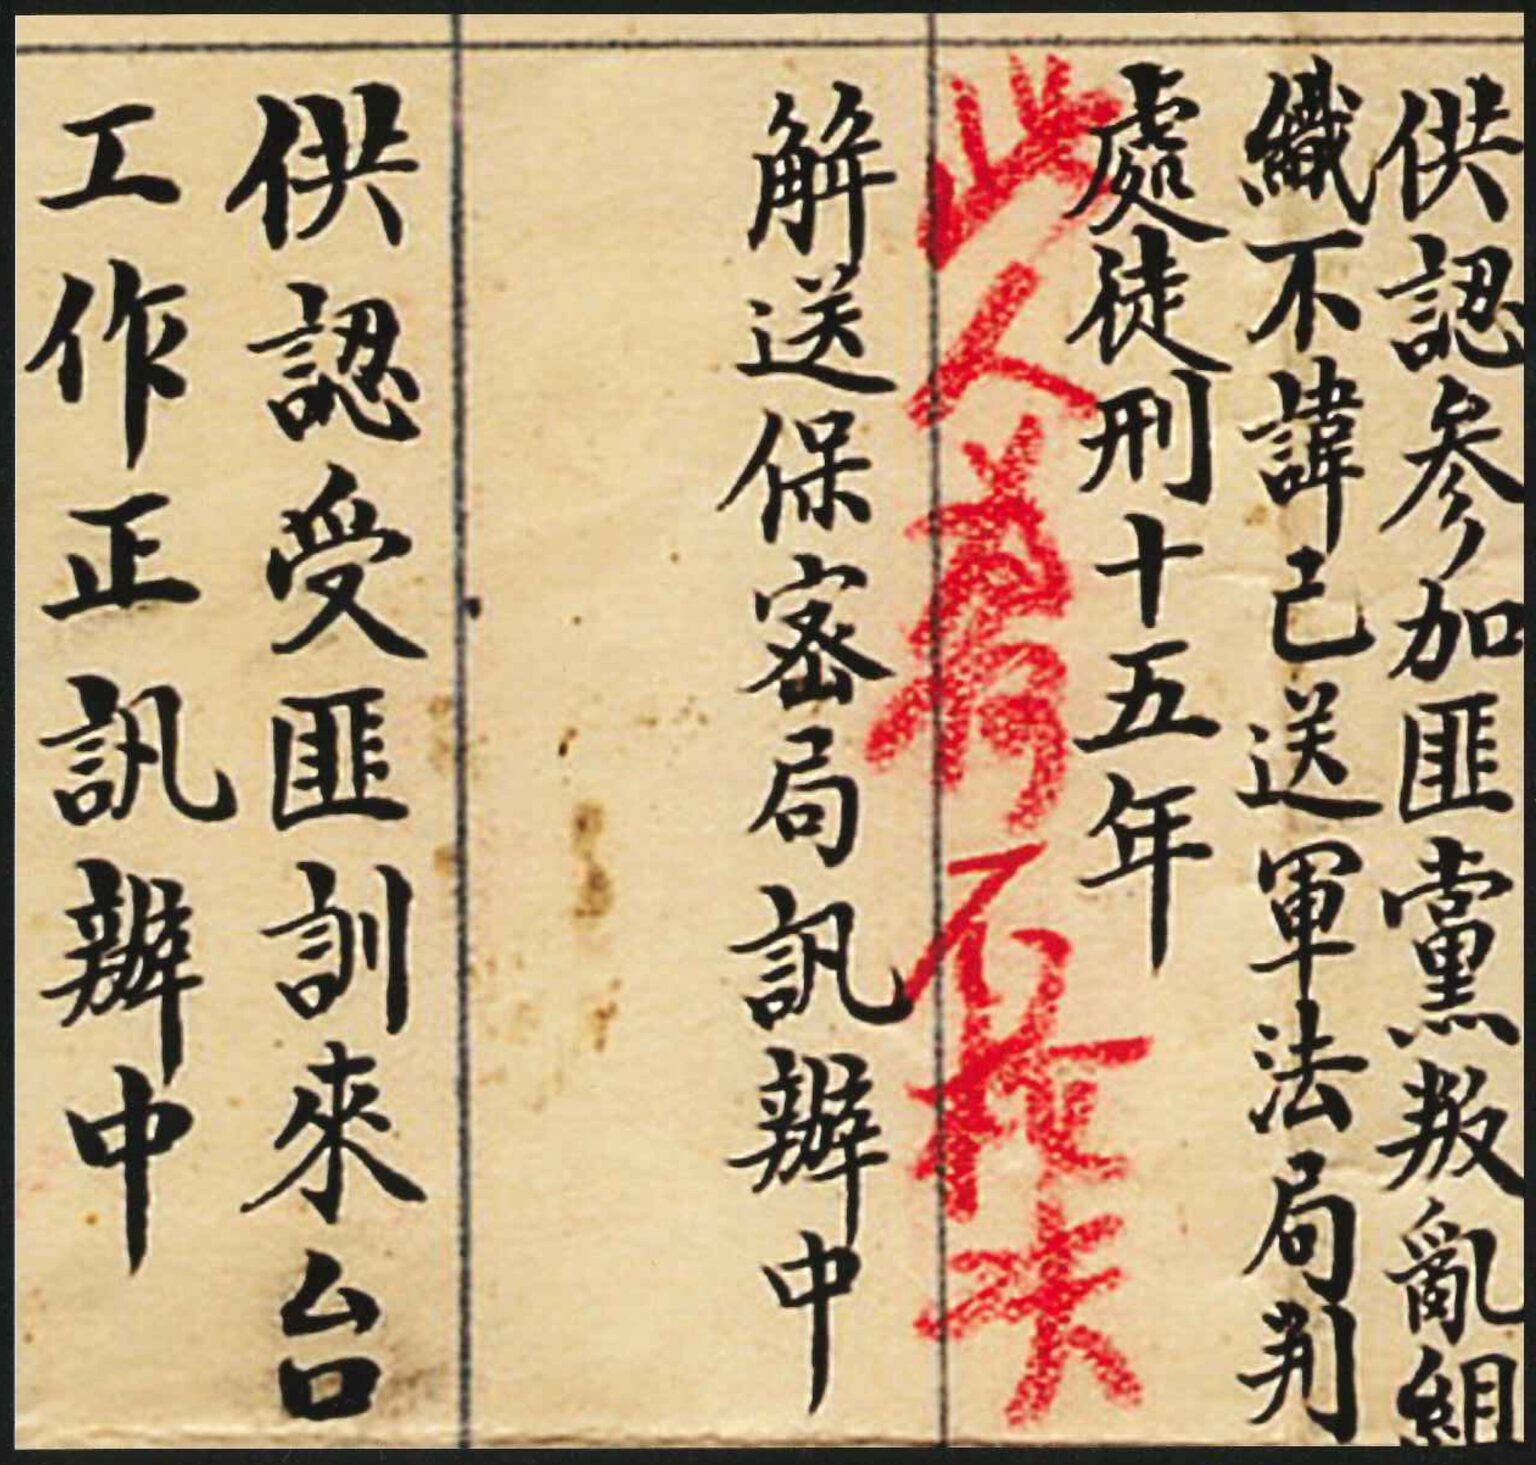 供認参加匪黨叛亂組
織不諱已送軍法局判
處徒刑十五年
此人為何不槍決
解送保密局訊辦中
供認受匪訓來台
工作正訊辦中